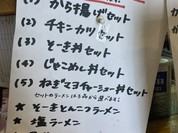 (1) から揚げセット
(2) チキンカツセット
(3) そーき丼セット
(4) じゅこめし丼セット
(5) ねぎマヨチャーシュー丼セット
セットのラーメンは
★ そーきとんこつラーメン
★ 塩ラーメン